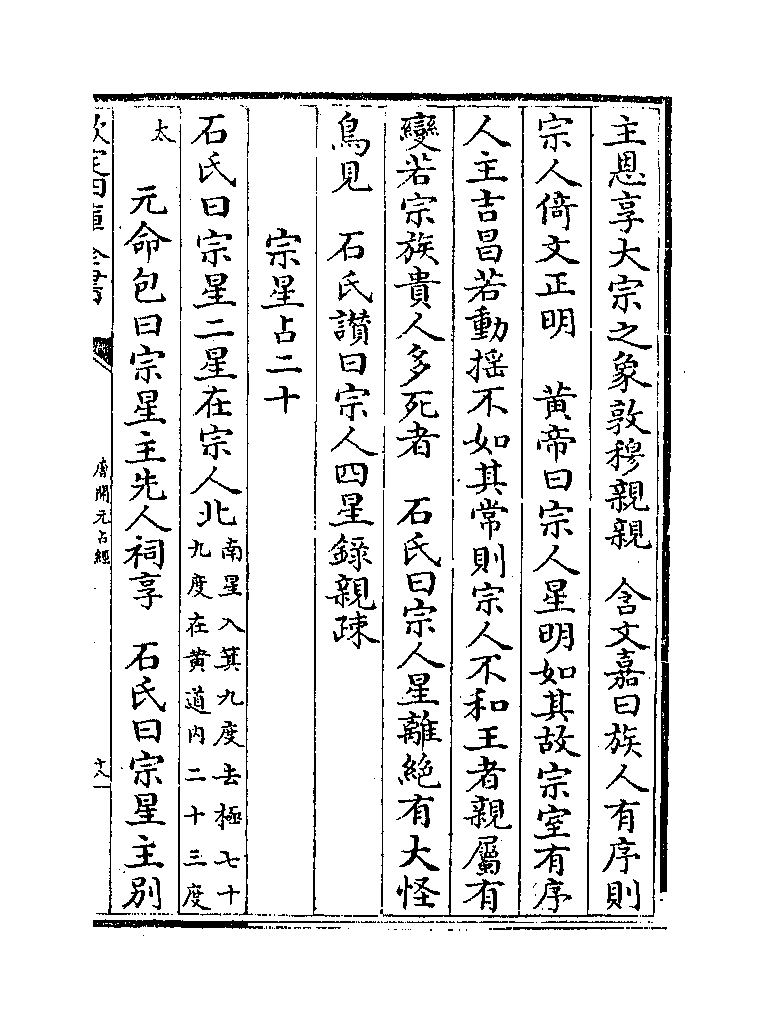 主恩享大宗之象敦穆親親　含文嘉曰族人有序則
宗人倚文正明　黄帝曰宗人星明如其故宗室有序
人主吉昌若動揺不如其常則宗人不和王者親屬有
變若宗族貴人多死者　石氏曰宗人星離絶有大怪
鳥見　石氏讃曰宗人四星錄親疎
宗星占二十
石氏曰宗星二星在宗人北南星入箕九度去極七十
九度在黄道内二十三度
太
元命包曰宗星主先人祠享　石氏曰宗星主别
欽定四庫全書
唐開元占經
十八